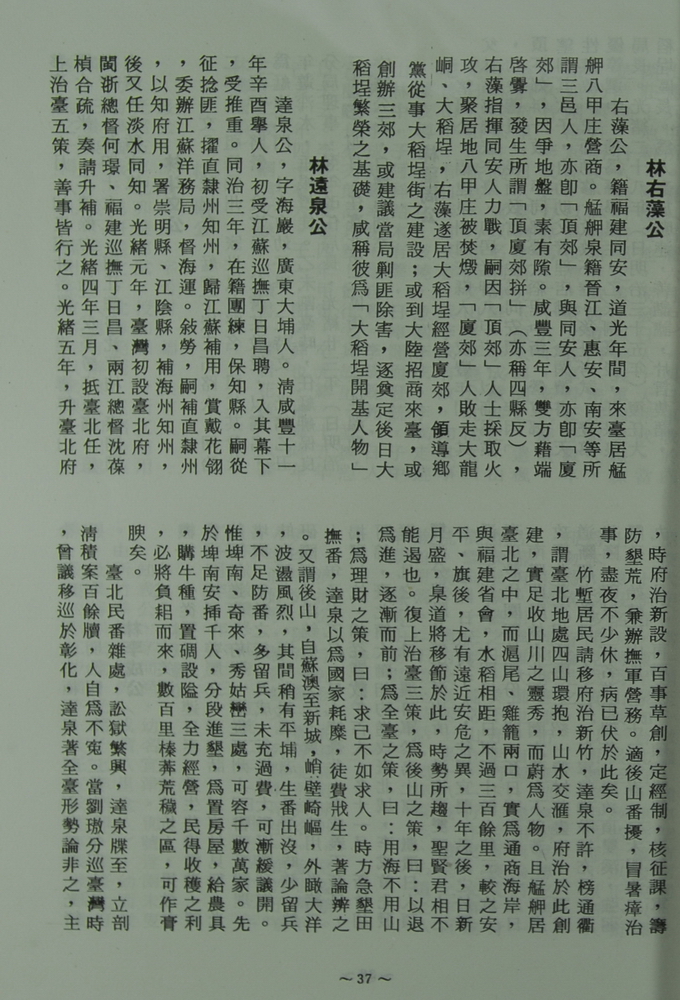 林右藻公
右藻公，籍福建同安，道光年間，來臺居艋
舺八甲庄營商。艋舺泉籍晉江、惠安、南安等所
謂三邑人，亦卽「頂郊」，與同安人，亦卽「廈
郊」，因爭地盤，素有隙。咸豐三年，雙方藉端
啓釁，發生所謂「頂廈郊拼」（亦稱四縣反），
右藻指揮同安人力戰，嗣因「頂郊」人士採取火
攻，聚居地八甲庄被焚燬，「廈郊」人敗走大龍
峒、大稻埕，右藻遂居大稻埕經營廈郊，領導鄉
黨從事大稻埕街之建設；或到大陸招商來臺，或
創辦三郊，或建議當局剿匪除害，逐奠定後日大
稻埕繁榮之基礎，咸稱彼爲「大稻埕開基人物」
林達泉公
達泉公，字海巖，廣東大埔人。清咸豐十一
年辛酉舉人，初受江蘇巡撫丁日昌聘，入其幕下
，受推重。同治三年，在籍團練，保知縣。嗣從
征捻匪，擢直隸州知州，歸江蘇補用，賞戴花翎
，委辦江蘇洋務局，督海運。敍勞，嗣補直隸州
，以知府用，署崇明縣、江陰縣，補海州知州，
後又任淡水同知。光緒元年，臺灣初設臺北府，
閩浙總督何璟、福建巡撫丁日昌、兩江總督沈葆
楨合疏，奏請升補。光緒四年三月，抵臺北任，
上治臺五策，善事皆行之。光緒五年，升臺北府
，時府治新設，百事草創，定經制，核征課，籌
防墾荒，兼辦撫軍營務。適後山番擾，冒暑瘴治
事，盡夜不少休，病已伏於此矣。
竹塹居民請移府治新竹，達泉不許，榜通衢
，謂臺北地處四山環抱，山水交滙，府治於此創
建，實足收山川之靈秀，而蔚爲人物。且艋舺居
臺北之中，而滬尾、雞籠兩口，實爲通商海岸，
與福建省會，水稻相距，不過三百餘里，較之安
平、旗後，尤有遠近安危之異，十年之後，日新
月盛，臬道將移節於此，時勢所趨，聖賢君相不
能遏也。復上治臺三策，爲後山之策，曰：以退
爲進，逐漸而前；爲全臺之策，曰：用海不用山
；爲理財之策，曰：求己不如求人。時方急墾田
撫番，達泉以爲國家耗糜，徒費戕生，著論辨之
。又謂後山，自蘇澳至新城，峭壁崎嶇，外瞰大洋
，波盪風烈，其間稍有平埔，生番出沒，少留兵
，不足防番，多留兵，未充過費，可漸緩議開。
惟埤南、奇來、秀姑巒三處，可容千數萬家。先
於埤南安挿千人，分段進墾，爲置房屋，給農具
，購牛種，置碉設隘，全力經營，民得收穫之利
，必將負耜而來，數百里榛莽荒穢之區，可作膏
腴矣。
臺北民番雜處，訟獄繁興，達泉牒至，立剖
淸積案百餘牘，人自爲不寃。當劉璈分巡臺灣時
，曾議移巡於彰化，達泉著全臺形勢論非之，主
～37～